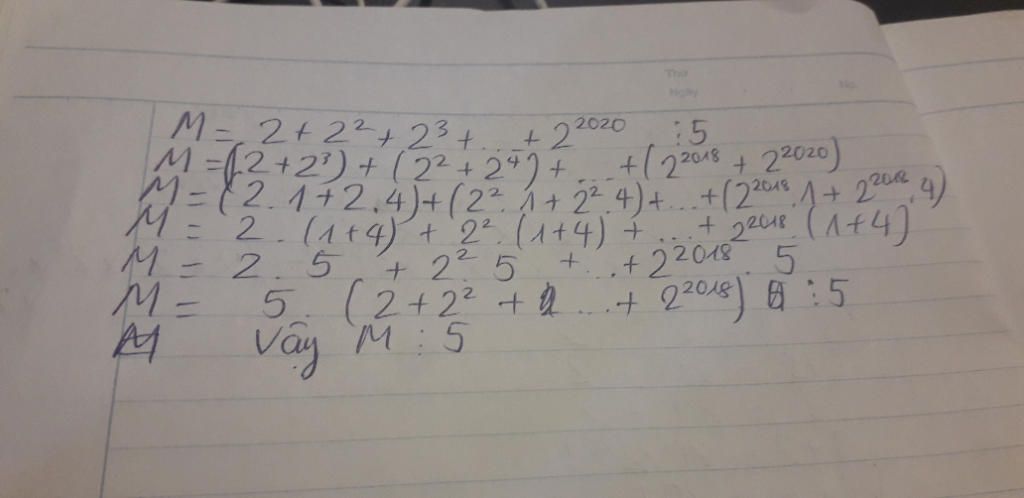 Thứ
Ngày
No.
M = 2 + 2² + 2³ + ... + 2²⁰²⁰ ⋮ 5
M = (2 + 2³) + (2² + 2⁴) + ... + (2²⁰¹⁸ + 2²⁰²⁰)
M = (2 . 1 + 2 . 4) + (2² . 1 + 2² . 4) + ... + (2²⁰¹⁸ . 1 + 2²⁰¹⁸ . 4)
M = 2 . (1 + 4) + 2² . (1 + 4) + ... + 2²⁰¹⁸ . (1 + 4)
M = 2 . 5 + 2² . 5 + ... + 2²⁰¹⁸ . 5
M = 5 . (2 + 2² + ... + 2²⁰¹⁸) ⋮ 5
Vậy M ⋮ 5